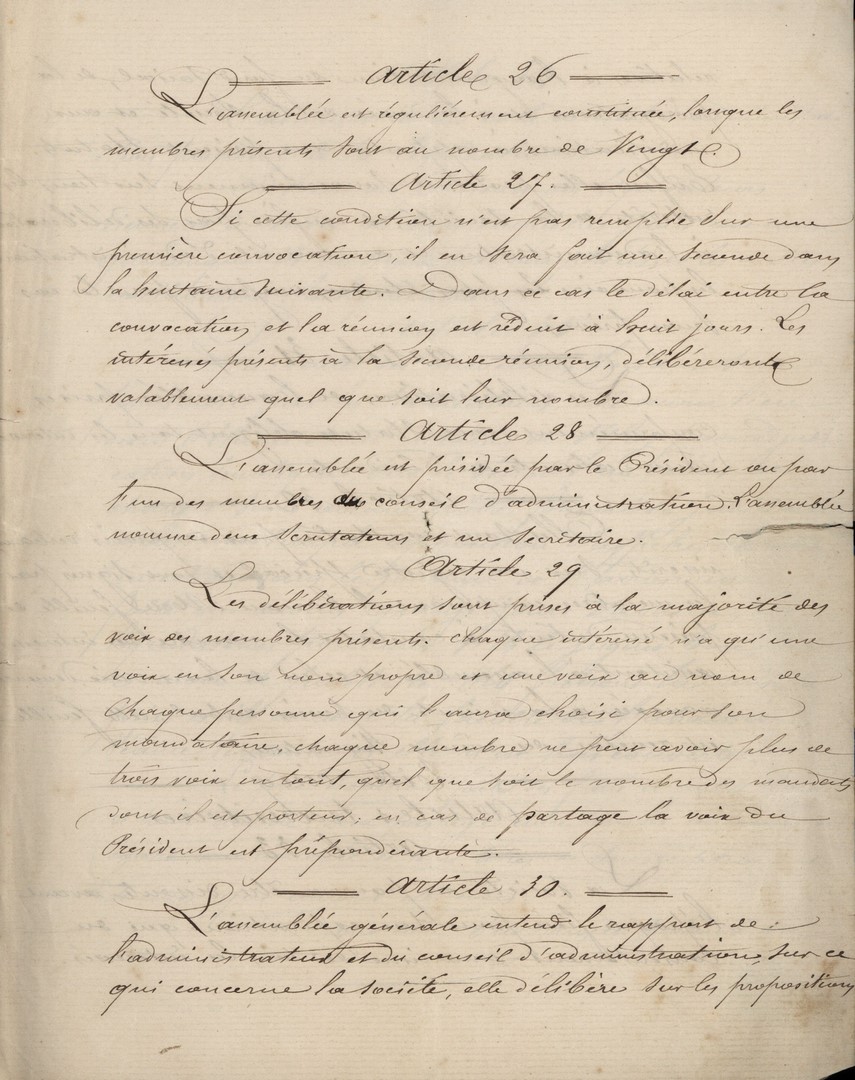 Article 26
L'assemblée est régulièrement constituée, lorsque les
membres présents sont au nombre de Vingt.
Article 27.
Si cette condition n'est pas remplie sur une
première convocation, il en sera fait une seconde dans
la huitaine suivante. Dans ce cas le délai entre la
convocation et la réunion est réduit à huit jours. Les
intéressés présents à la seconde réunion, délibéreront
valablement quel que soit leur nombre.
Article 28
L'assemblée est présidée par le Président ou par
l'un des membres du conseil d'administration. L'assemblée
nomme deux scrutateurs et un secrétaire.
Article 29
Les délibérations sont prises à la majorité des
voix des membres présents. chaque intéressé n'a qu'une
voix en son nom propre et une voix au nom de
Chaque personne qui l'aura choisi pour son
mandataire, chaque membre ne peut avoir plus de
trois voix en tout, quel que soit le nombre des mandats
dont il est porteur; en cas de partage la voix du
Président est prépondérante.
Article 30.
L'assemblée générale entend le rapport de
l'administrateur et du conseil d'administration, sur ce
qui concerne la société, elle délibère sur les propositions